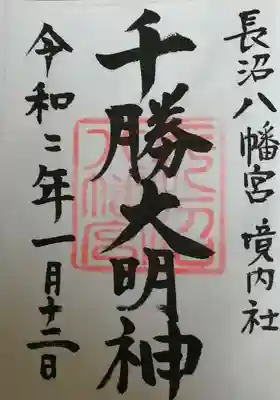 長沼八幡宮 境内社
千勝大明神
令和二年一月十二日